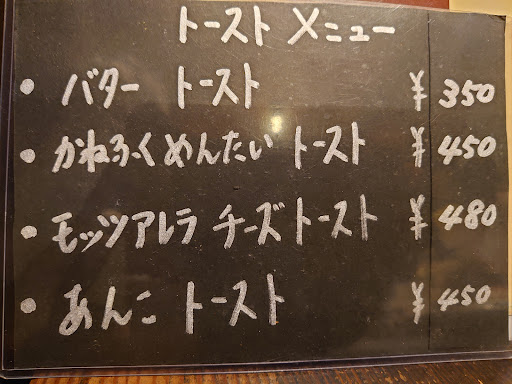 トースト メニュー
・バター トースト ¥350
・かねふくめんたい トースト ¥450
・モッツアレラ チーズトースト ¥480
・あんこ トースト ¥450